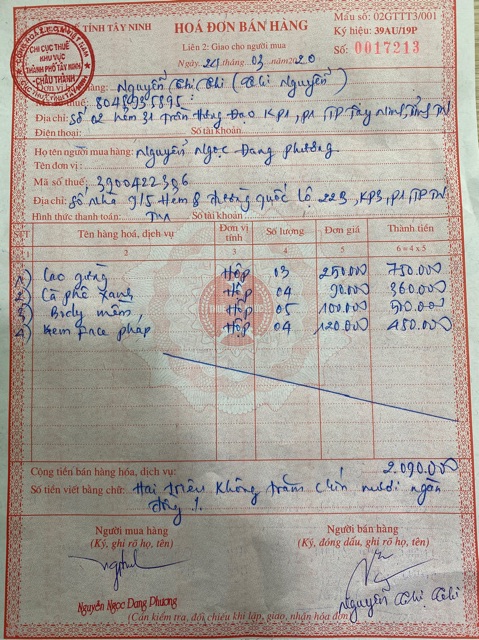 TỈNH TÂY NINH
HOÁ ĐƠN BÁN HÀNG
Mẫu số: 02GTTT3/001
Liên 2: Giao cho người mua
Ký hiệu: 39AU/19P
Ngày 24 tháng 03 năm 2020
Số: 0017213
CHI CỤC THUẾ
KHU VỰC
THÀNH PHỐ TÂY NINH-
CHÂU THÀNH
Đơn vị bán hàng: Nguyễn Thị Chi (Chi Nguyễn)
thuế: 8045935895
Địa chỉ: Số 02 hẻm 31 Trần Hưng Đạo KP1, P1 TP Tây Ninh, Tỉnh TN
Điện thoại: Số tài khoản
Họ tên người mua hàng: Nguyễn Ngọc Đang Phương
Tên đơn vị:
Mã số thuế: 3900422396
Địa chỉ: Số nhà 9/5 Hẻm 8 đường Quốc Lộ 22B, KP3, P1, TPTN
Hình thức thanh toán: TM Số tài khoản
STT Tên hàng hoá, dịch vụ Đơn vị tính Số lượng Đơn giá Thành tiền
1 2 3 4 5 6 = 4 x 5
1) Cao gừng Hộp 03 250.000 750.000
2) Cà phê xanh Hộp 04 90.000 360.000
3) mềm Hộp 05 100.000 500.000
4) Kem Face pháp Hộp 04 120.000 480.000
Cộng tiền bán hàng hóa, dịch vụ: 2.090.000
Số tiền viết bằng chữ: Hai triệu không trăm chín mươi ngàn
đồng
Người mua hàng
(Ký, ghi rõ họ, tên)
Người bán hàng
(Ký, đóng dấu, ghi rõ họ, tên)
Nguyễn Ngọc Đang Phương
Nguyễn Thị Chi
(Cần kiểm tra, đối chiếu khi lập, giao, nhận hóa đơn)